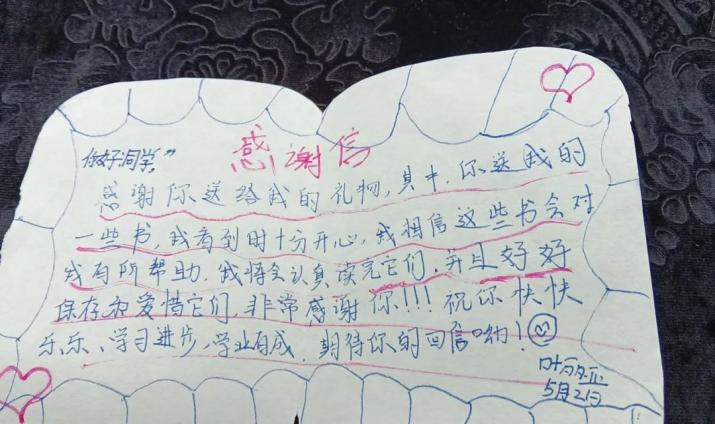 感谢信
你好同学”
感谢你送给我的礼物,其中,你送我的
一些书,我看到时十分开心,我相信这些书会对
我有所帮助.我将会认真读完它们.并且好好
保存和爱惜它们.非常感谢你!!!祝你快快
乐乐、学习进步,学业有成.期待你的回信呦!
叶丽亚
5月21日